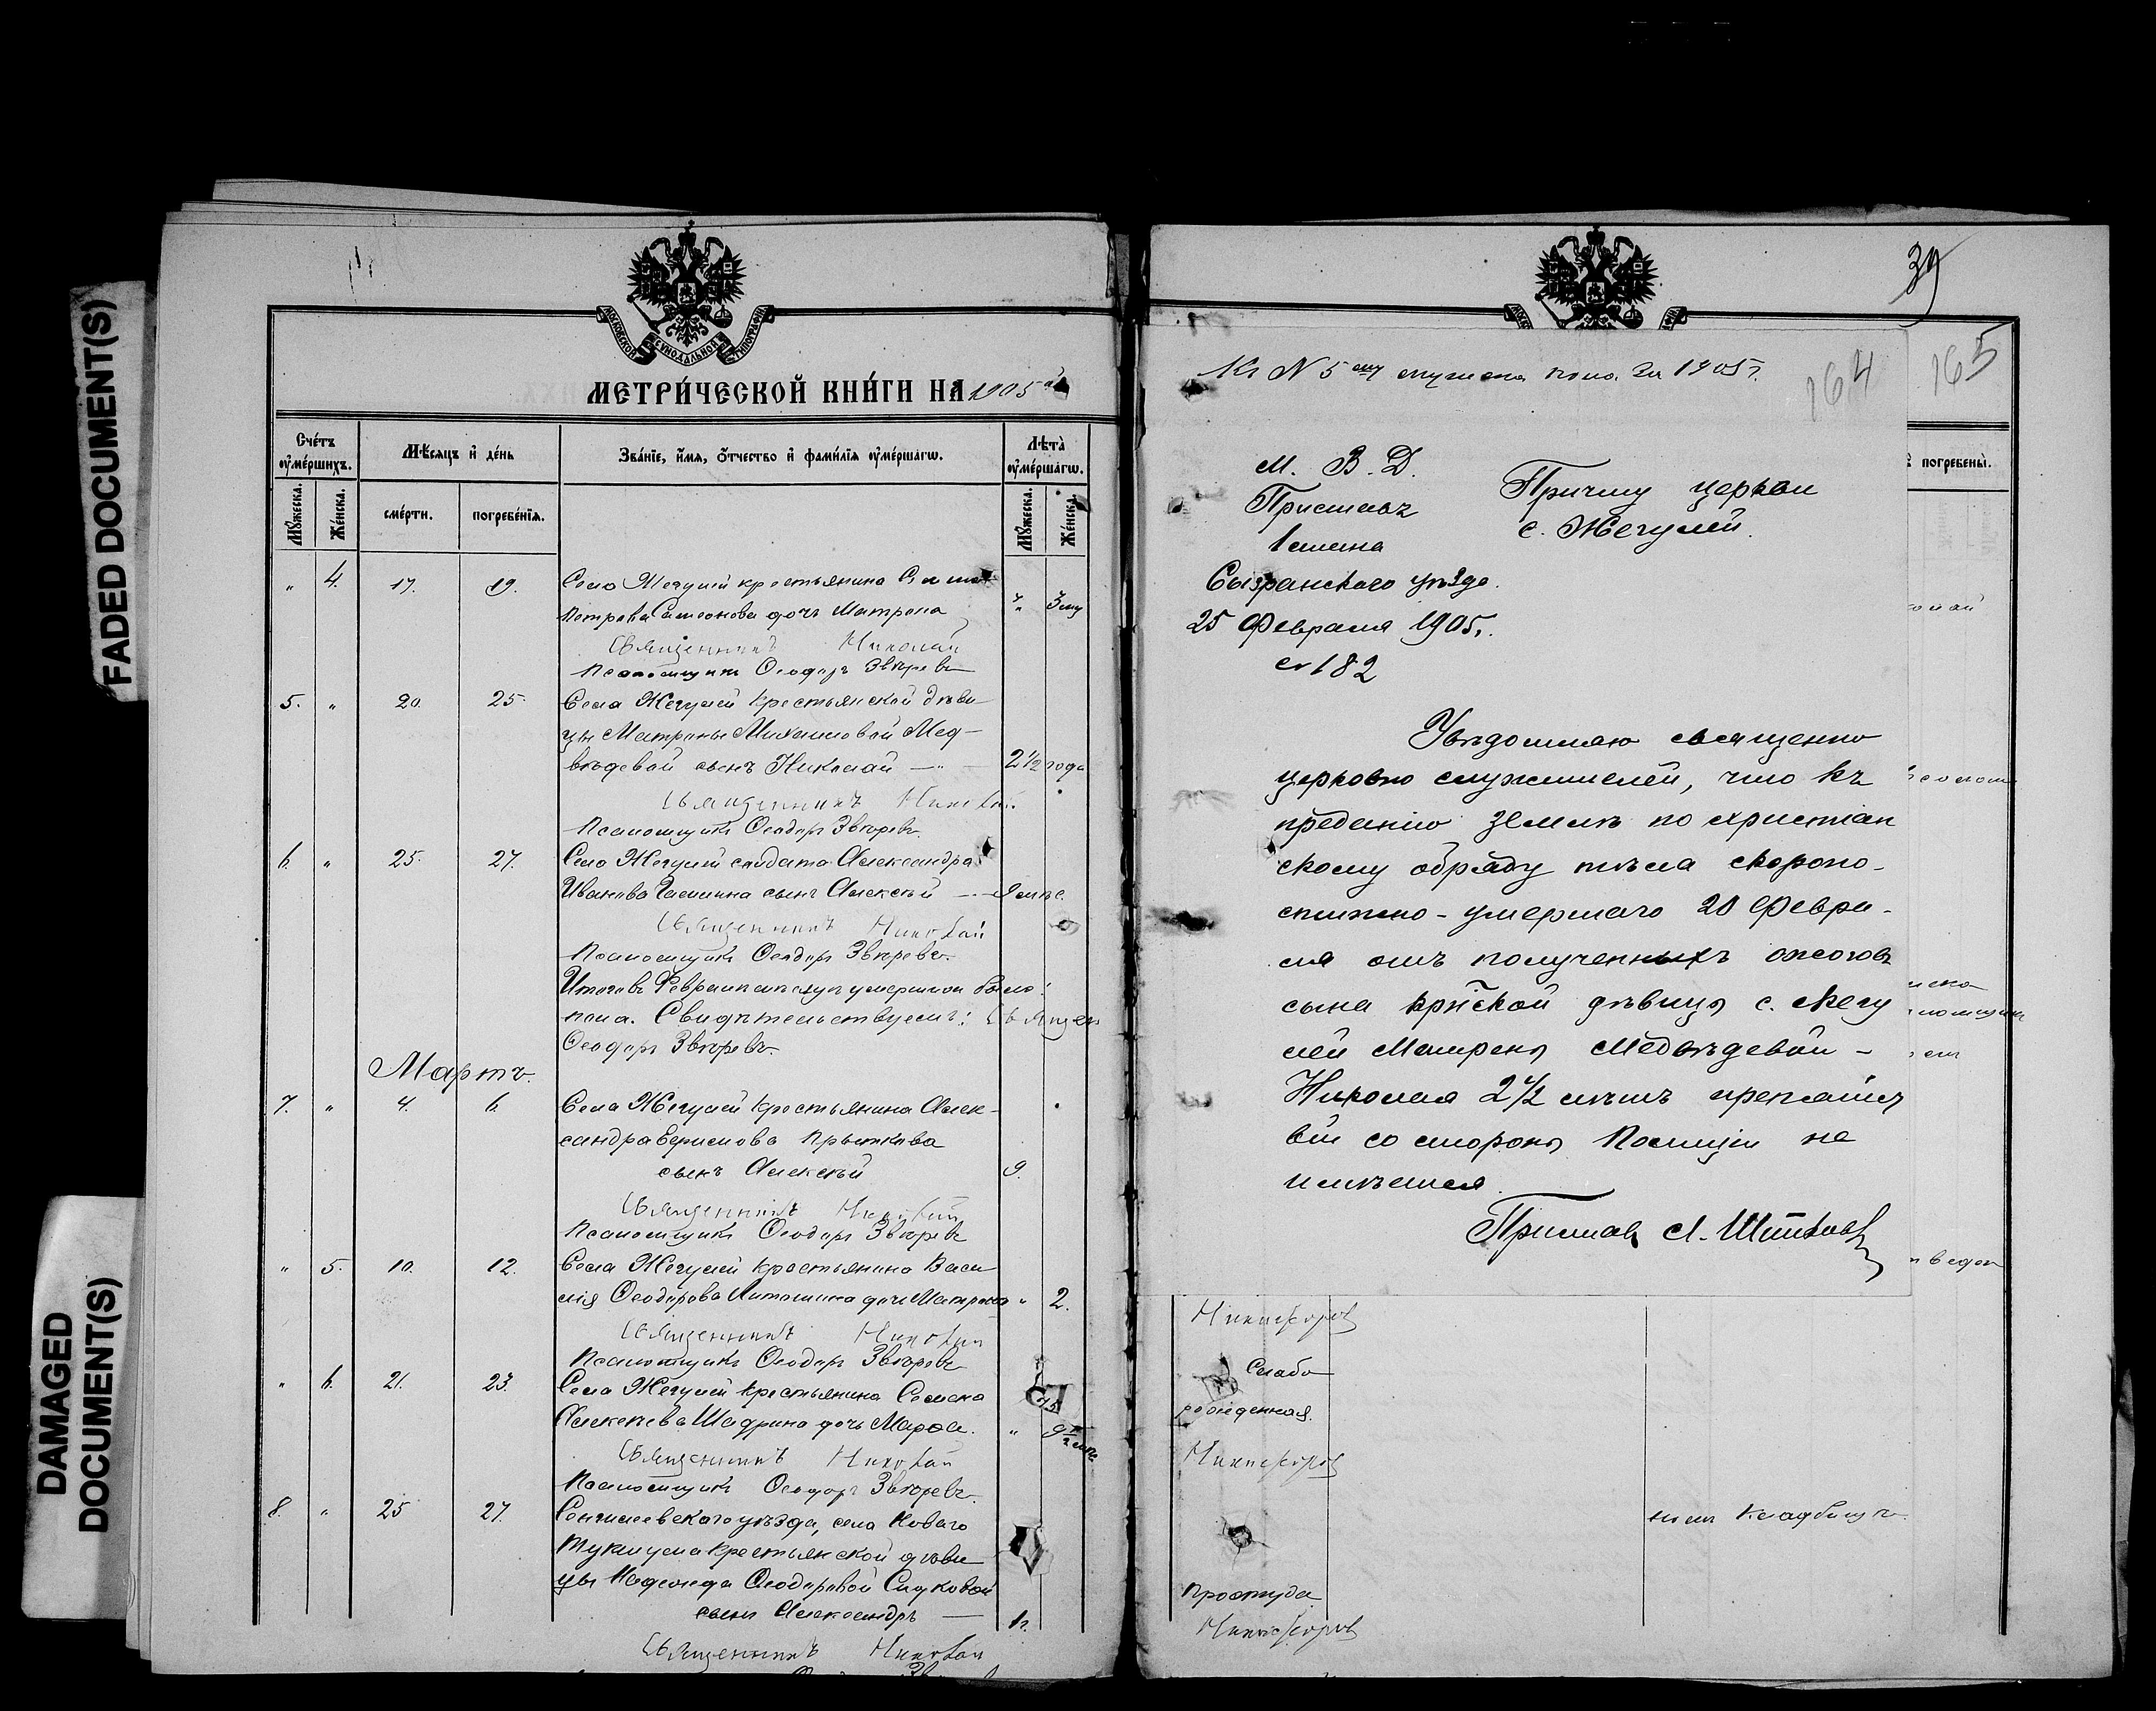 FADED DOCUMENT(S)
DAMAGED
DOCUMENT(S)
МОСКОВСКОЙ СѴНОДАЛЬНОЙ ТИПОГРАФІИ
МЕТРИ́ЧЕСКОЙ КНИ́ГИ НА 1905
Сче́тъ
ᲂу҆ме́ршихъ.
Мѣ́сяцъ и҆ де́нь
Зва́нїе, и҆́мя, ѻ҆́тчество и҆ фами́лїя ᲂу҆ме́ршагѡ.
Лѣ́та
ᲂу҆ме́ршагѡ.
Мꙋжеска.
Же́нска.
сме́рти.
погребе́нїя.
Мꙋжеска.
Же́нска.
" 4. 17. 19. Село Жегулей крестьянина
Петрова Самсонова дочь Матрона "
Священникъ Николай
Псаломщикъ Ѳеодоръ Звѣревъ
5. " 20. 25. Села Жегулей крестьянской дѣви-
цы Матроны Михайловой Мед-
вѣдевой сынъ Николай — " — 2½ года
Священникъ Николай
Псаломщикъ Ѳеодоръ Звѣревъ
6. " 25. 27. Село Жегулей солдата Александра
Иванова сынъ Алексѣй —
Священникъ Николай
Псаломщикъ Ѳеодоръ Звѣревъ.
Итого въ Февралѣ умершихъ было:
пола. Свидѣтельствуемъ: Священ
Ѳеодоръ Звѣревъ.
Мартъ.
7. " 4. 6. Села Жегулей крестьянина Алек-
сандра
сынъ Алексѣй 9.
Священникъ Николай
Псаломщикъ Ѳеодоръ Звѣревъ
" 5. 10. 12. Села Жегулей крестьянина Васи-
лія Ѳеодорова дочь Матрона " 2.
Священникъ Николай
Псаломщикъ Ѳеодоръ Звѣревъ
" 6. 21. 23. Села Жегулей крестьянина Семена
Алексѣева Шадрина дочь "
Священникъ Николай
Псаломщикъ Ѳеодоръ Звѣревъ.
8. " 25 27. Сенгилеевскаго уѣзда, села Новаго
Тукшума крестьянской дѣви-
цы Надежда Ѳеодоровой
сынъ Александръ —
Священникъ Николай
39
165
164
Къ N 5му мужска пола за 1905 г.
М. В. Д.
Приставъ
1 стана
Сызранскаго уѣзда.
25 Февраля 1905 г.
№ 182
Причту церкви
с. Жегулей.
Увѣдомляю священно
церковно служителей, что къ
преданію землѣ по христіан
скому обряду тѣла скоропо-
стижно-умершаго 20 Февра-
ля отъ полученныхъ ожоговъ
сына кр̃ской дѣвицы с. Жегу
лей Матрены Медвѣдевой -
Николая 2½ лѣтъ препятст
вій со стороны Полиціи не
имѣется.
Приставъ
погребены̀.
Никифоровъ
Слабо
рожденная.
Никифоровъ
Простуда
Никифоровъ
номъ кладбищѣ.